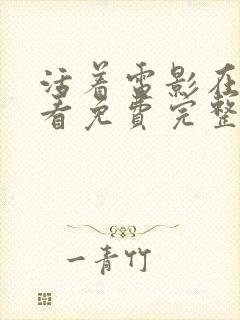 活着雷影在
看免费完整
一青竹